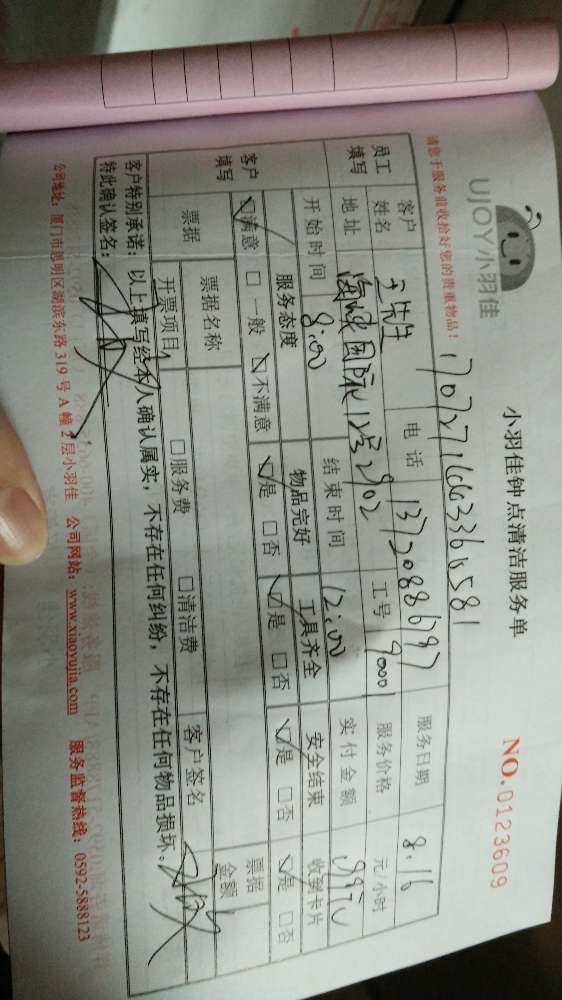 UJOY小羽佳
小羽佳钟点清洁服务单
NO.0123609
请您于服务前收拾好您的贵重物品!
客户姓名 王先生 电话 服务日期 8.16
员工填写
地址 海峡国际 工号 90001 服务价格 元/小时
开始时间 8:00 结束时间 12:00 实付金额
客户填写
服务态度 物品完好 工具齐全 安全结束 收到卡片
☑满意 □一般 □不满意 ☑是 □否 ☑是 □否 ☑是 □否 ☑是 □否
票据 票据名称 票据金额
开票项目 □服务费 □清洁费 客户签名
客户特别承诺:以上填写经本人确认属实,不存在任何纠纷,不存在任何物品损坏。
特此确认签名:
公司地址:厦门市思明区湖滨东路 319 号 A 幢 2 层小羽佳 公司网站:www.xiaoyujia.com 服务监督热线:0592-5888123